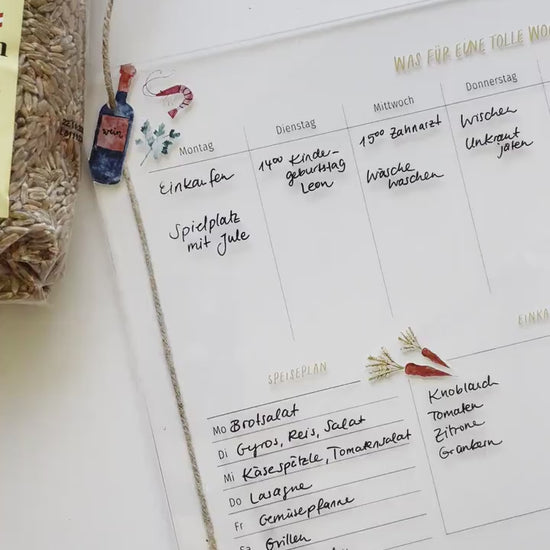 WAS FÜR EINE TOLLE WO
Montag
Dienstag
Mittwoch
Donnerstag
wein
Einkaufen
Spielplatz
mit Jule
14⁰⁰ Kinder-
geburtstag
Leon
15⁰⁰ Zahnarzt
Wäsche
waschen
Wischen
Unkraut
jäten
SPEISEPLAN
Mo Brotsalat
Di Gyros, Reis, Salat
Mi Käsespätzle, Tomatensalat
Do Lasagne
Fr Gemüsepfanne
Sa Grillen
EINKA
Knoblauch
Tomaten
Zitrone
Grünkern